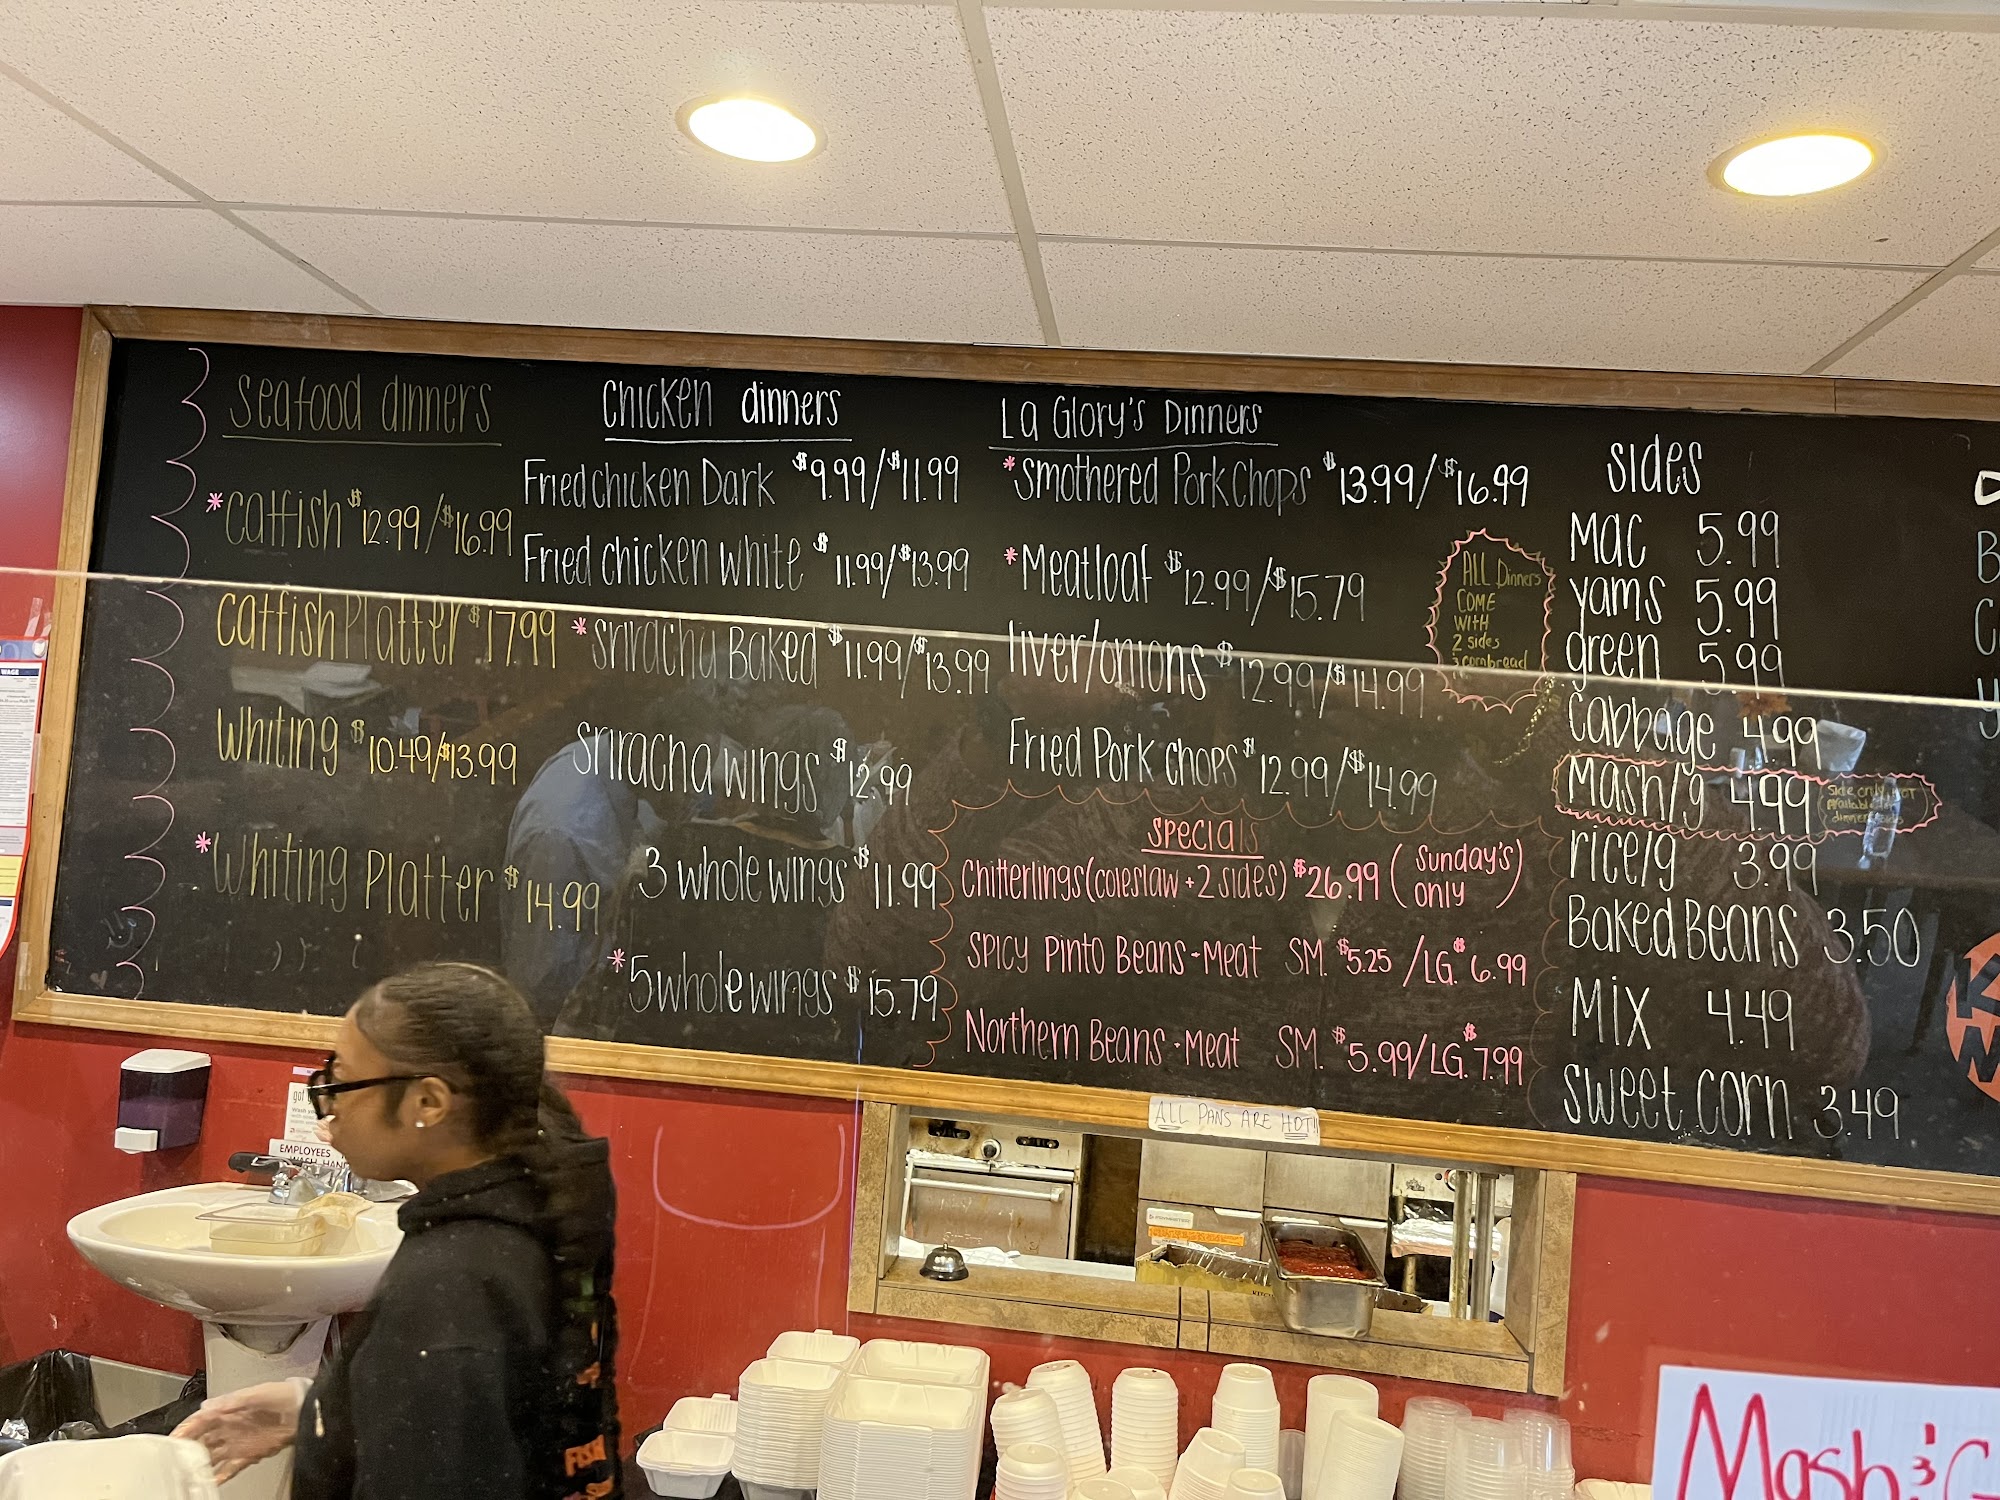 Seafood dinners
*Catfish $12.99/$16.99
Catfish Platter $17.99
Whiting $10.49/$13.99
*Whiting Platter $14.99
Chicken dinners
Fried chicken Dark $9.99/$11.99
Fried chicken white $11.99/$13.99
*Sriracha Baked $11.99/$13.99
Sriracha wings $12.99
3 whole wings $11.99
*5 whole wings $15.79
La Glory's Dinners
*Smothered Pork Chops $13.99/$16.99
*Meatloaf $12.99/$15.79
liver/onions $12.99/$14.99
Fried Pork chops $12.99/$14.99
ALL Dinners
COME
WITH
2 sides
& cornbread
Specials
Chitterlings (coleslaw + 2 sides) $26.99 (Sunday's only)
Spicy Pinto Beans - Meat SM. $5.25 / LG. $6.99
Northern Beans - Meat SM. $5.99/LG. $7.99
Sides
Mac 5.99
yams 5.99
green 5.99
cabbage 4.99
Mash/g 4.99
Side only, NOT
available for
dinner sides
rice/g 3.99
Baked Beans 3.50
Mix 4.49
sweet corn 3.49
ALL PANS ARE HOT!!
WAGE
EMPLOYEES
WASH HAN
FISH
Mash &